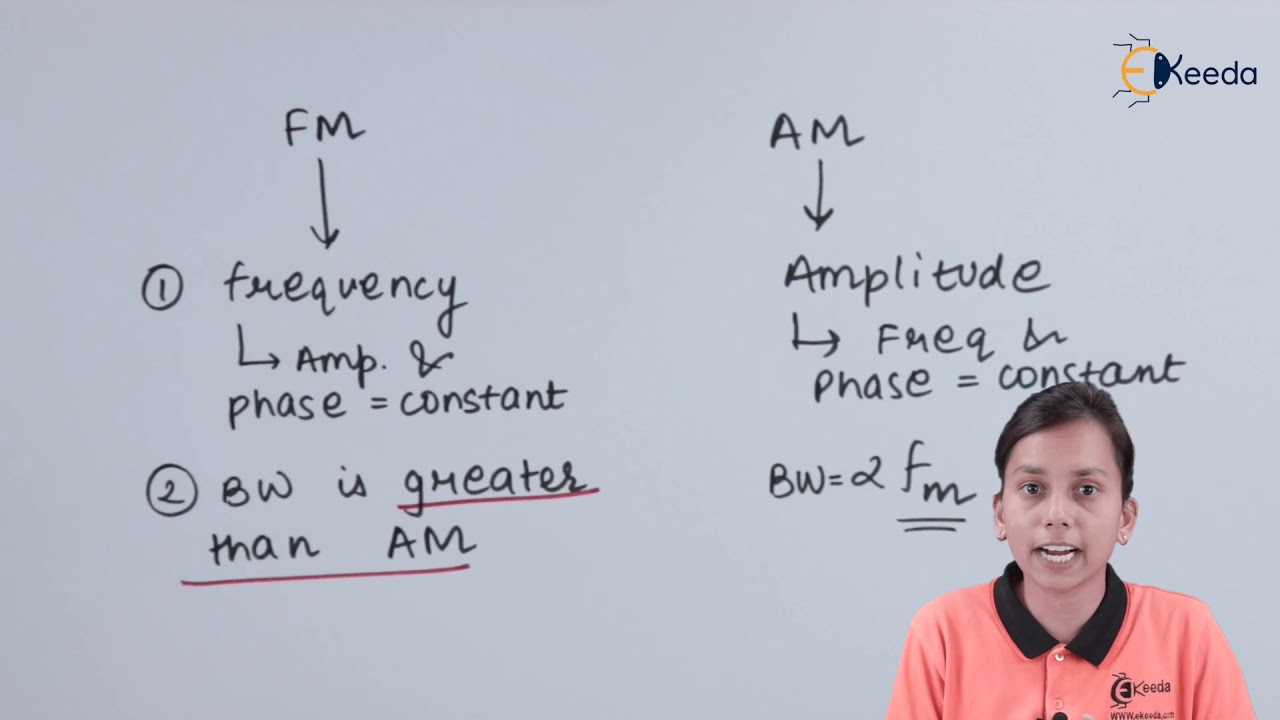 EKeeda
FM
AM
① frequency
↳ Amp. &
phase = constant
② BW is greater
than AM
Amplitude
↳ Freq &
phase = constant
BW = 2 fm
EKeeda
www.ekeeda.com